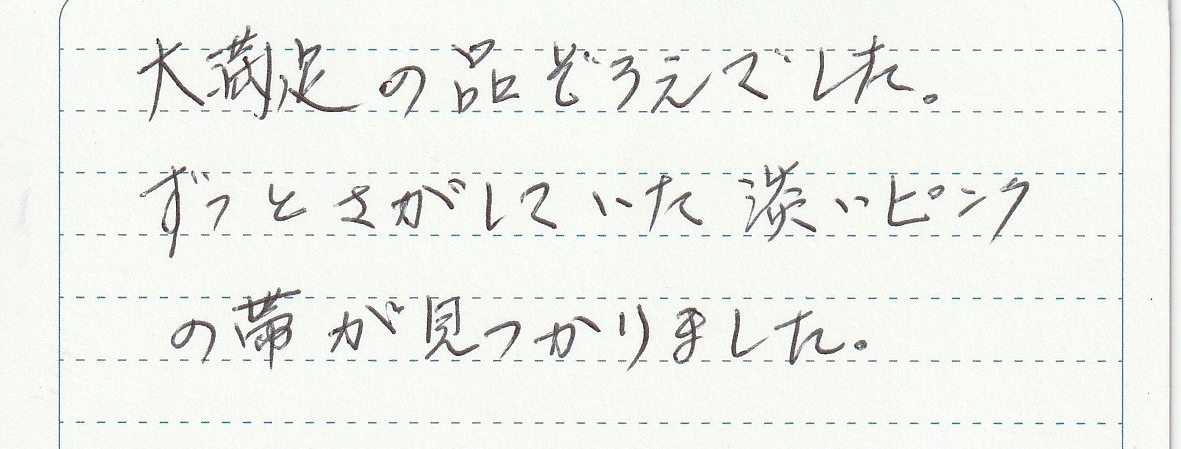 大満足の品ぞろえでした。
ずっとさがしていた淡いピンク
の帯が見つかりました。